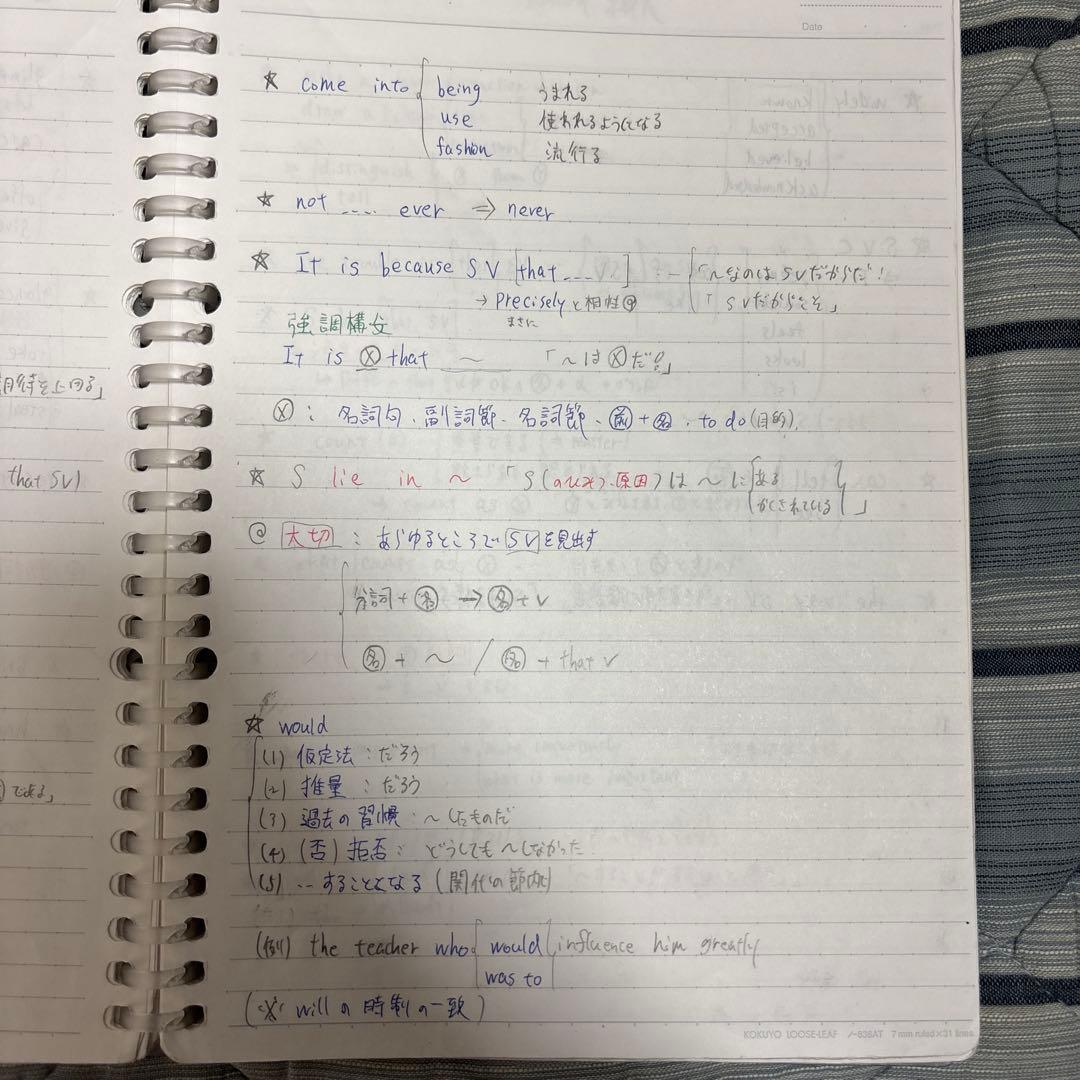 Date
☆ come into { being うまれる
use 使われるようになる
fashion 流行る
☆ not .... ever ⇒ never
☆ It is because SV [that ....] - 「〜なのは SVだからだ!
→ Precisely と相性◎ 「SVだからこそ」
まさに
強調構文
It is Ⓧ that 〜 「〜は Ⓧ だ!」
Ⓧ : 名詞句、副詞節、名詞節、前+名、to do (目的)
期待を上回る」
☆ S lie in 〜 「S( 原因)は 〜 に { ある
that SV)
かくされている } 」
◎ 大切 : あらゆるところで SV を見出す
分詞 + 名 → 名 + v
名 + 〜 / 名 + that v
☆ would
(1) 仮定法 : だろう
(2) 推量 : だろう
である」
(3) 過去の習慣 : 〜したものだ
(4) (否) 拒否 : どうしても〜しなかった
(5) ‥することとなる (関代の節内)
(例) the teacher who { would } influence him greatly
was to
(※ will の時制の一致)
KOKUYO LOOSE-LEAF ノ-836AT 7 mm ruled×31 lines